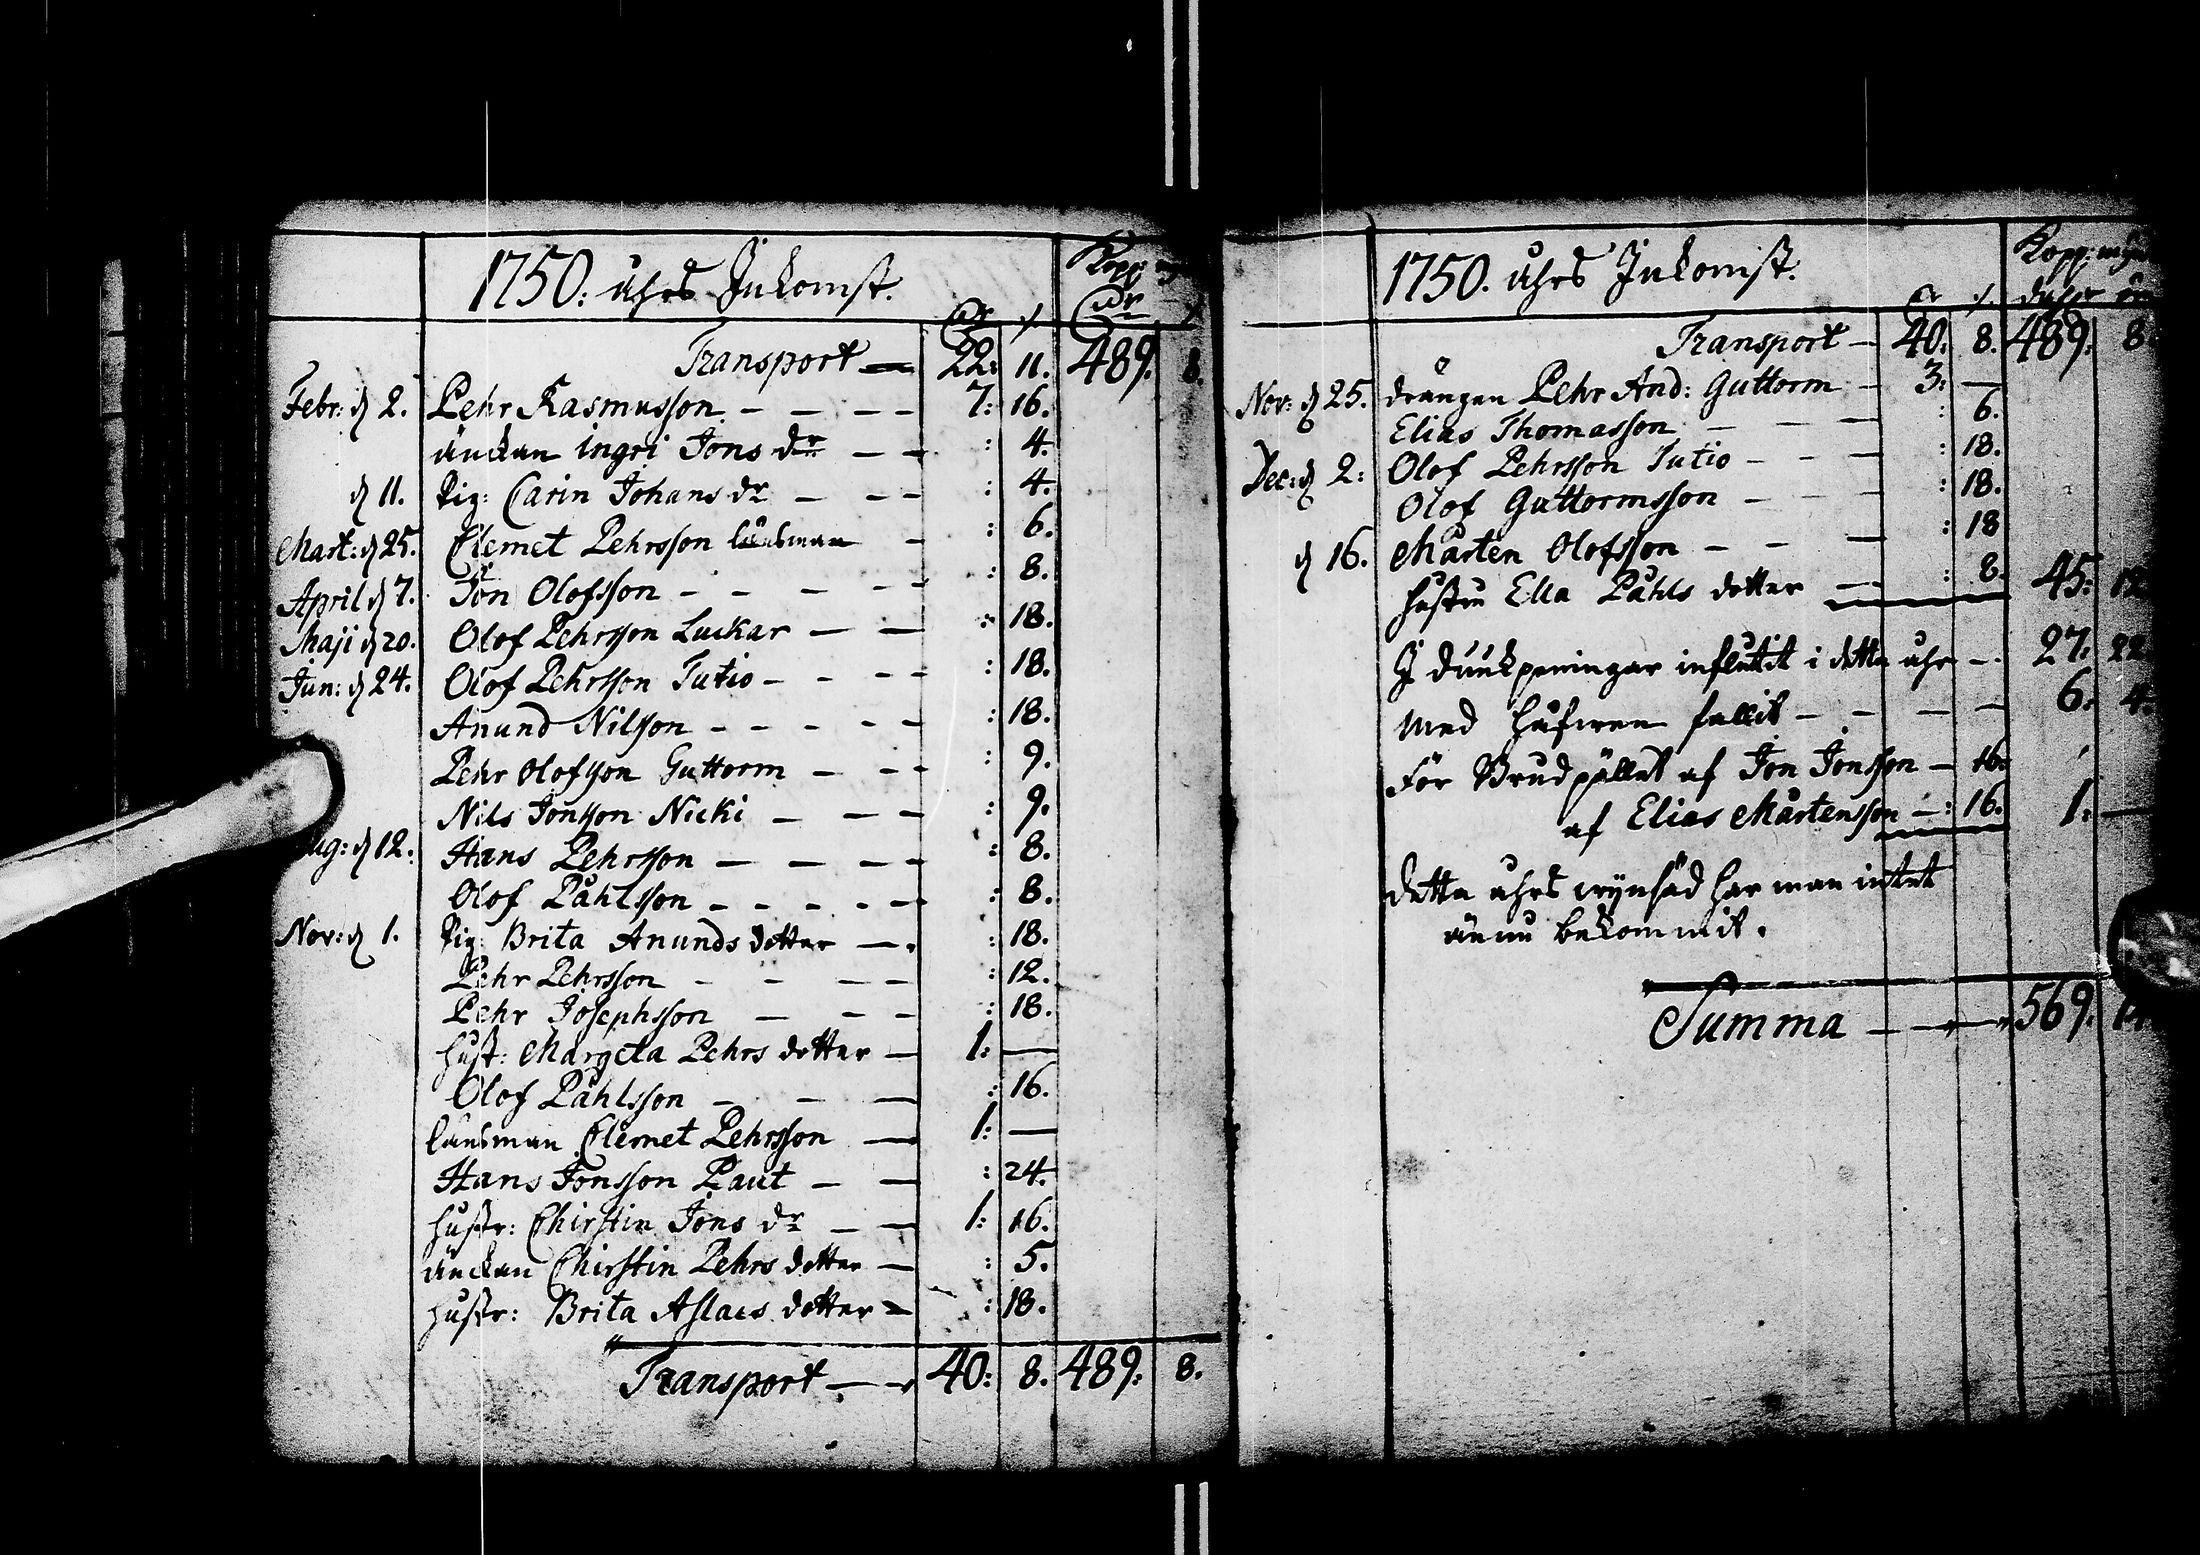 1750: åhrs Inkomst. Kopp:
Dr ./. Dr ./.
Transport — 22: 11. 489. 8.
Febr: d 2. Pehr Rasmusson — — — — 7: 16.
änckan Ingri Jons dr — — : 4.
d 11. Pig: Carin Johans dr — — — : 4.
Mart: d 25. Clemet Pehrsson länsman — : 6.
April d 7. Jon Olofsson — — — — : 8.
Maji d 20. Olof Pehrsson Luckar — — : 18.
Jun: d 24. Olof Pehrsson Tutio — — — — : 18.
Anund Nilsson — — — — — : 18.
Pehr Olofsson Guttorm — — — : 9.
Nils Jonsson Nicki — — — : 9.
Aug: d 12. Hans Pehrsson — — — — : 8.
Olof Påhlsson — — — — — : 8.
Nov: d 1. Pig: Brita Anunds dotter — . : 18.
Pehr Pehrsson — — — — : 12.
Pehr Josephsson — — — : 18.
hust: Margeta Pehrs dotter — 1: —
Olof Påhlsson — — — : 16.
länsman Clemet Pehrsson — 1: —
Hans Jonsson Paut — — : 24.
hustr: Chirstin Jons dr — — 1: 16.
änckan Chirstin Pehrs dotter — : 5.
hustr: Brita Aslacs dotter — : 18.
Transport — — 40: 8. 489. 8.
1750. åhrs Inkomst. Kopp: mynt
Dr ./. daler
Transport — 40: 8. 489: 8
Nov: d 25. drängen Pehr And: Guttorm — 3: —
Elias Thomasson — — — : 6.
Dec: d 2: Olof Pehrsson Tutio — — — : 18.
Olof Guttormsson — — — : 18.
d 16. Mårten Olofsson — — — : 18
hustru Ella Påhls dotter — : 8. 45: 12
I dunkpeningar influtit i detta åhr — . 27: 22
Med håfwen fallit — — — — 6: 4.
För Brudpället af Jon Jonsson — 16.
af Elias Mårtensson — : 16. 1: —
detta åhrs wijnsäd har man intet
ännu bekommit.
Summa — — — 569.